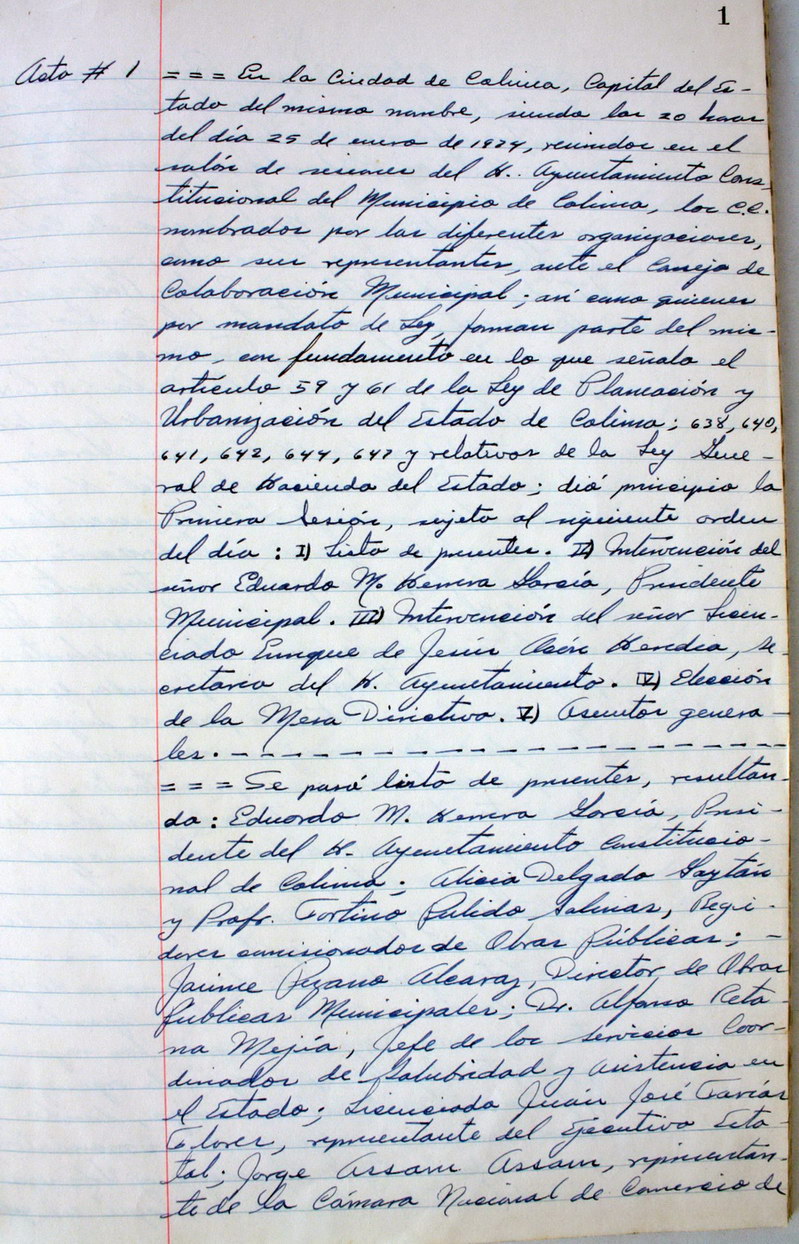 1
Acta # 1 = = = En la Ciudad de Colima, Capital del Es-
tado del mismo nombre, siendo las 20 horas
del día 25 de enero de 1974, reunidos en el
salón de sesiones del H. Ayuntamiento Cons-
titucional del Municipio de Colima, los C.C.
nombrados por las diferentes organizaciones,
como sus representantes, ante el Consejo de
Colaboración Municipal; así como quienes
por mandato de Ley, forman parte del mis-
mo, con fundamento en lo que señala el
artículo 59 y 61 de la Ley de Planeación y
Urbanización del Estado de Colima; 638, 640,
641, 642, 644, 647 y relativos de la Ley Gene-
ral de Hacienda del Estado; dió principio la
Primera Sesión, sujeto al siguiente orden
del día: I) Lista de presentes. II) Intervención del
señor Eduardo M. Herrera García, Presidente
Municipal. III) Intervención del señor Licen-
ciado Enrique de Jesús Heredia, Se-
cretario del H. Ayuntamiento. IV) Elección
de la Mesa Directiva. V) Asuntos genera-
les. - - - - - - - - - - - - - - - -
= = = Se pasó lista de presentes, resultan-
do: Eduardo M. Herrera García, Presi-
dente del H. Ayuntamiento Constitucio-
nal de Colima; Alicia Delgado Gaytán
y Profr. Tortino Pulido Salinas, Regi-
dores comisionados de Obras Públicas; -
Jaime Alcaraz, Director de Obras
Públicas Municipales; Dr. Alfonso Reta-
na Mejía, Jefe de los Servicios Coor-
dinados de Salubridad y Asistencia en
el Estado; Licenciado Juan José Farías
Flores, representante del Ejecutivo Esta-
tal; Jorge Assam Assam, representan-
te de la Cámara Nacional de Comercio de